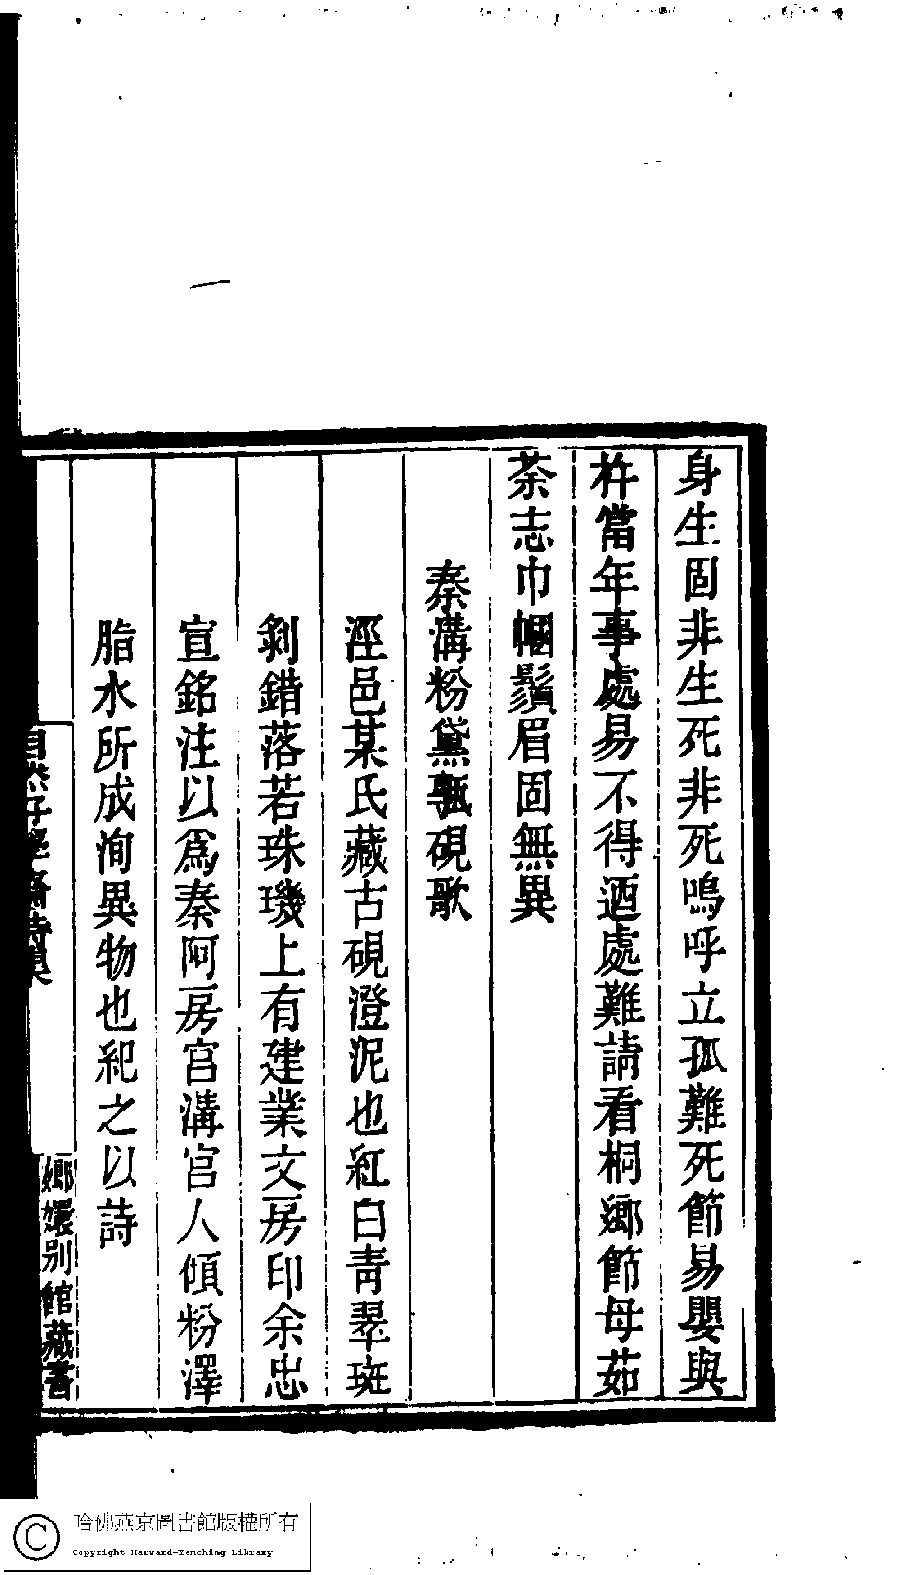 身生固非生死非死嗚呼立孤難死節易嬰與
杵當年事處易不得迺處難請看桐鄉節母茹
荼志巾幗鬚眉固無異
秦溝粉黛甎硯歌
涇邑某氏藏古硯澄泥也紅白青翠斑
剝錯落若珠璣上有建業文房印余忠
宣銘注以爲秦阿房宮溝宮人傾粉澤
脂水所成洵異物也紀之以詩
嫏嬛別館藏書
哈佛燕京圖書館版權所有
Copyright Harvard-Yenching Library